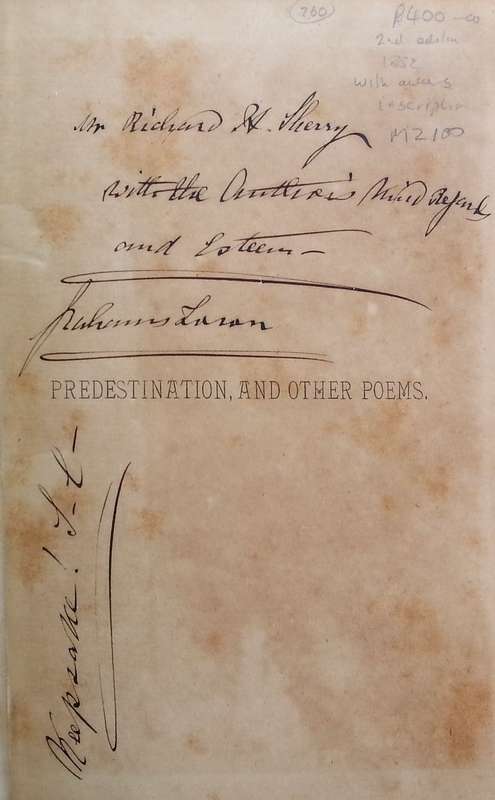 260
R400-00
2nd edition
1882
with author's
inscription
M2100
Mr Richard H. Sherry
with the Author's Kind Regards
and Esteem -
PREDESTINATION, AND OTHER POEMS.
Keepsake!